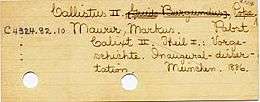 Callistus II Pope
C 4324.82.10 Maurer, Markus. Pabst
Calixt II. Theil I: Vorge-
schichte. Inaugural-disser-
tation. München. 1886.